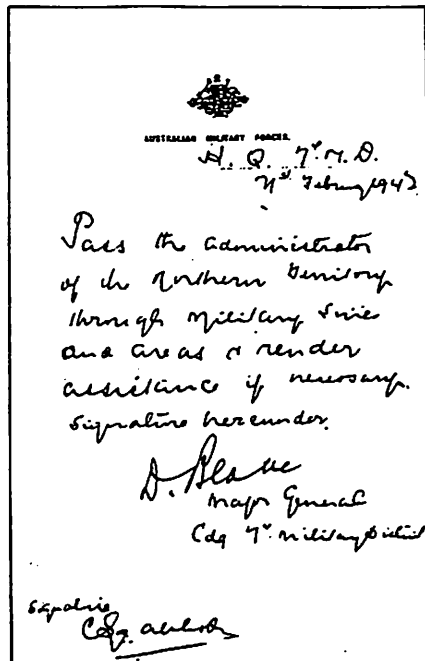 AUSTRALIAN MILITARY FORCES.
H. Q. 7th M. D.
February 1942
Pass the Administrator
of the Northern Territory
through Military lines
and areas & render
assistance if necessary.
Signature hereunder.
D. Blake
Major General
Cdg 7th Military District
Signature